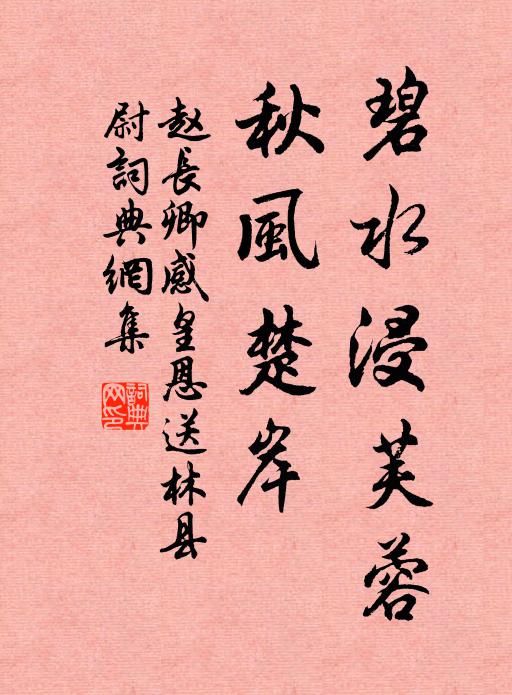 碧水浸芙蓉
秋風楚岸
赵長卿感皇恩送林县
尉詞典網集
詞典網印